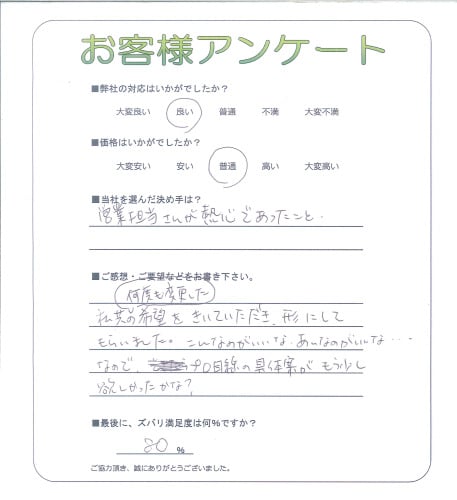 お客様アンケート
■弊社の対応はいかがでしたか？
大変良い 良い 普通 不満 大変不満
■価格はいかがでしたか？
大変安い 安い 普通 高い 大変高い
■当社を選んだ決め手は？
営業担当さんが熱心であったこと.
■ご感想・ご要望などをお書き下さい。
何度も変更した
私共の希望をきいていただき、形にして
もらいました。こんなのがいいな、あんなのがいいな・・・
なので、プロ目線の具体案がもう少し
欲しかったかな？
■最後に、ズバリ満足度は何%ですか？
80 %
ご協力頂き、誠にありがとうございました。